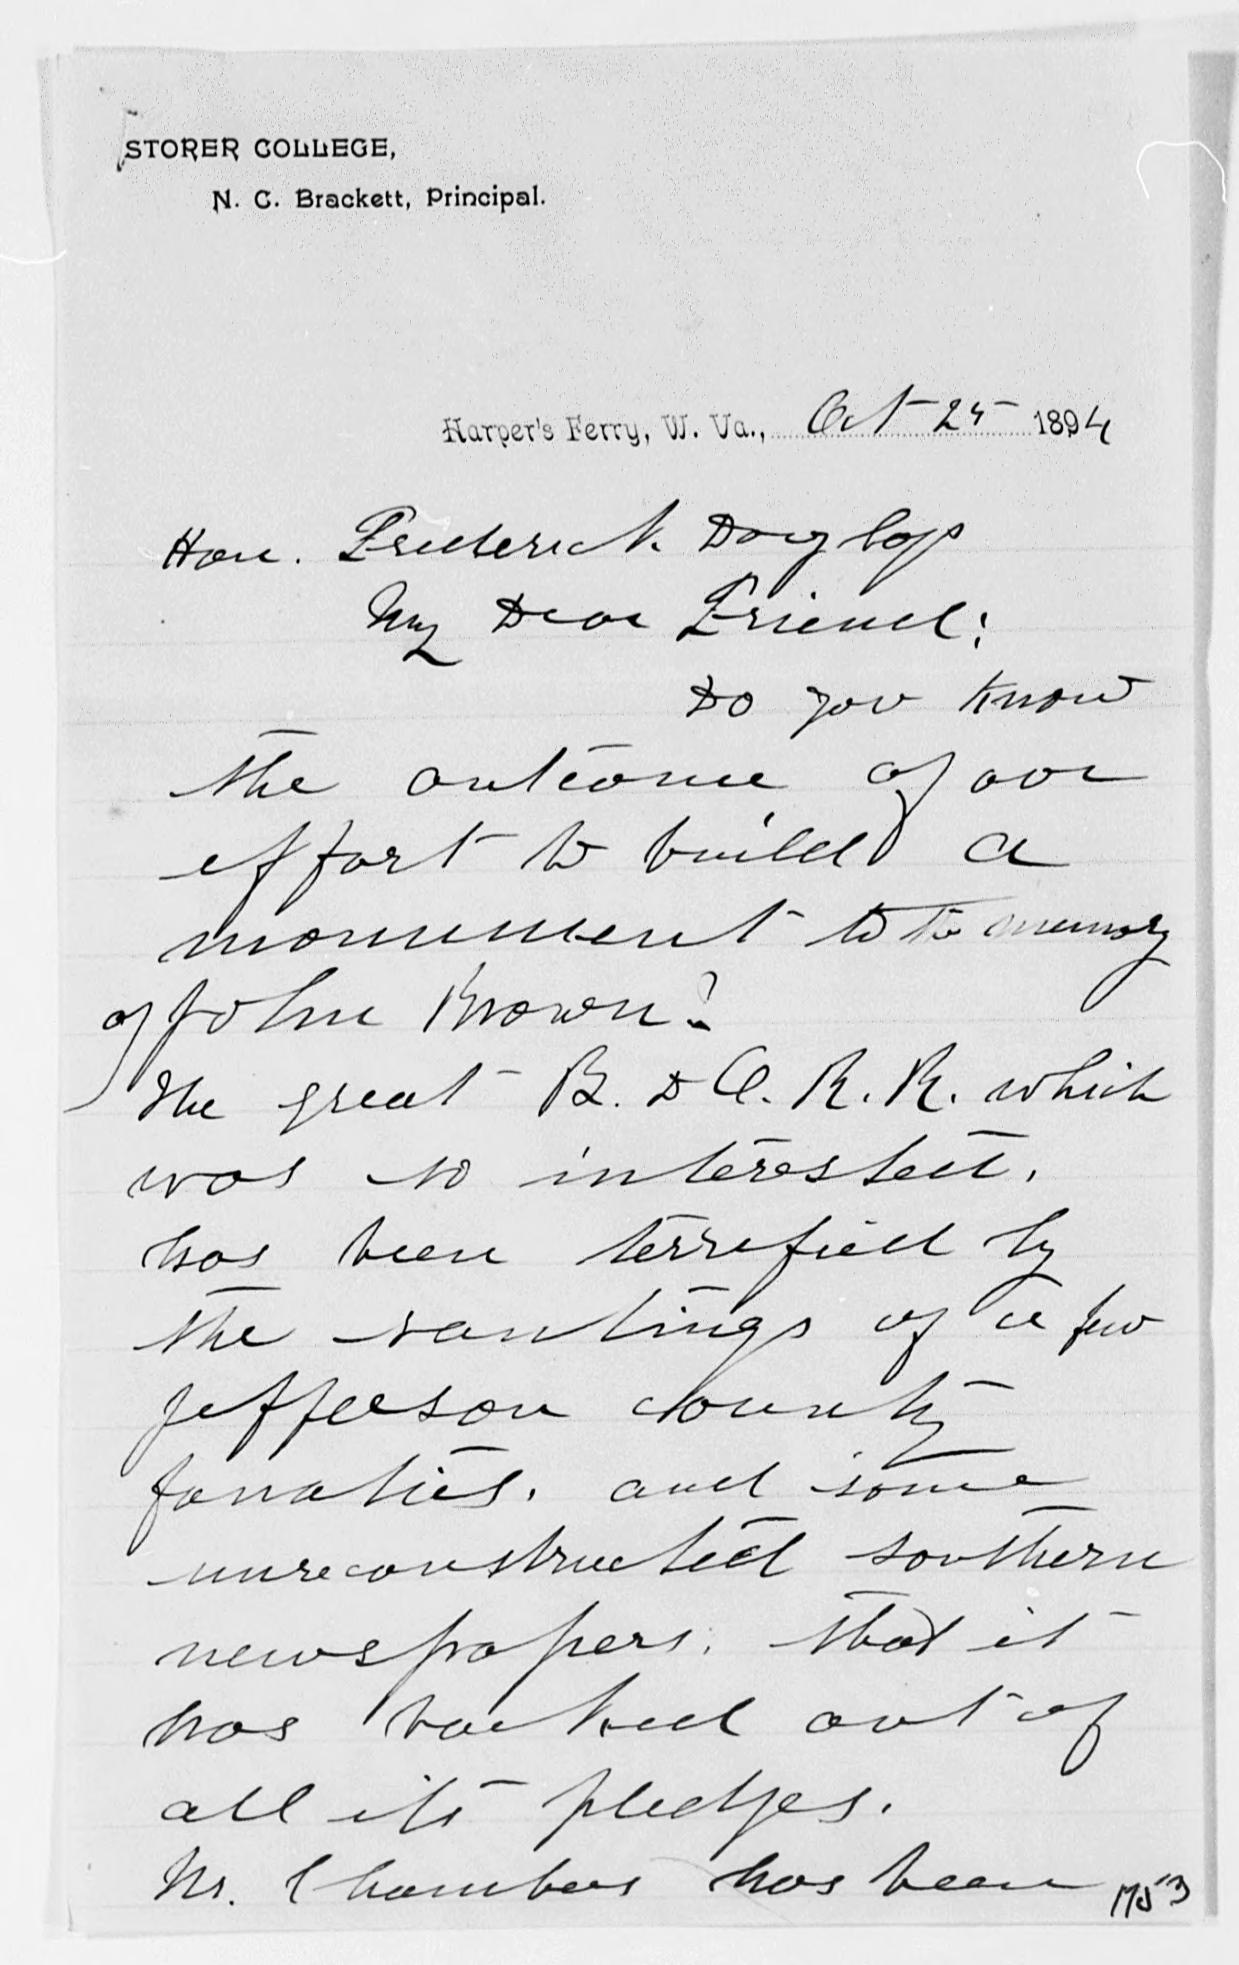 STORER COLLEGE,
N. C. Brackett, Principal.
Harper's Ferry, W. Va., Oct 25 1894
Hon. Frederick Douglass
My Dear Friend:
Do you know
the outcome of our
effort to build a
monument to the memory
of John Brown?
The great B. & O. R. R. which
was so interested,
has been terrified by
the rantings of a few
Jefferson County
fanatics, and some
unreconstructed southern
newspapers, that it
has backed out of
all its pledges.
Mr. Chambers has been